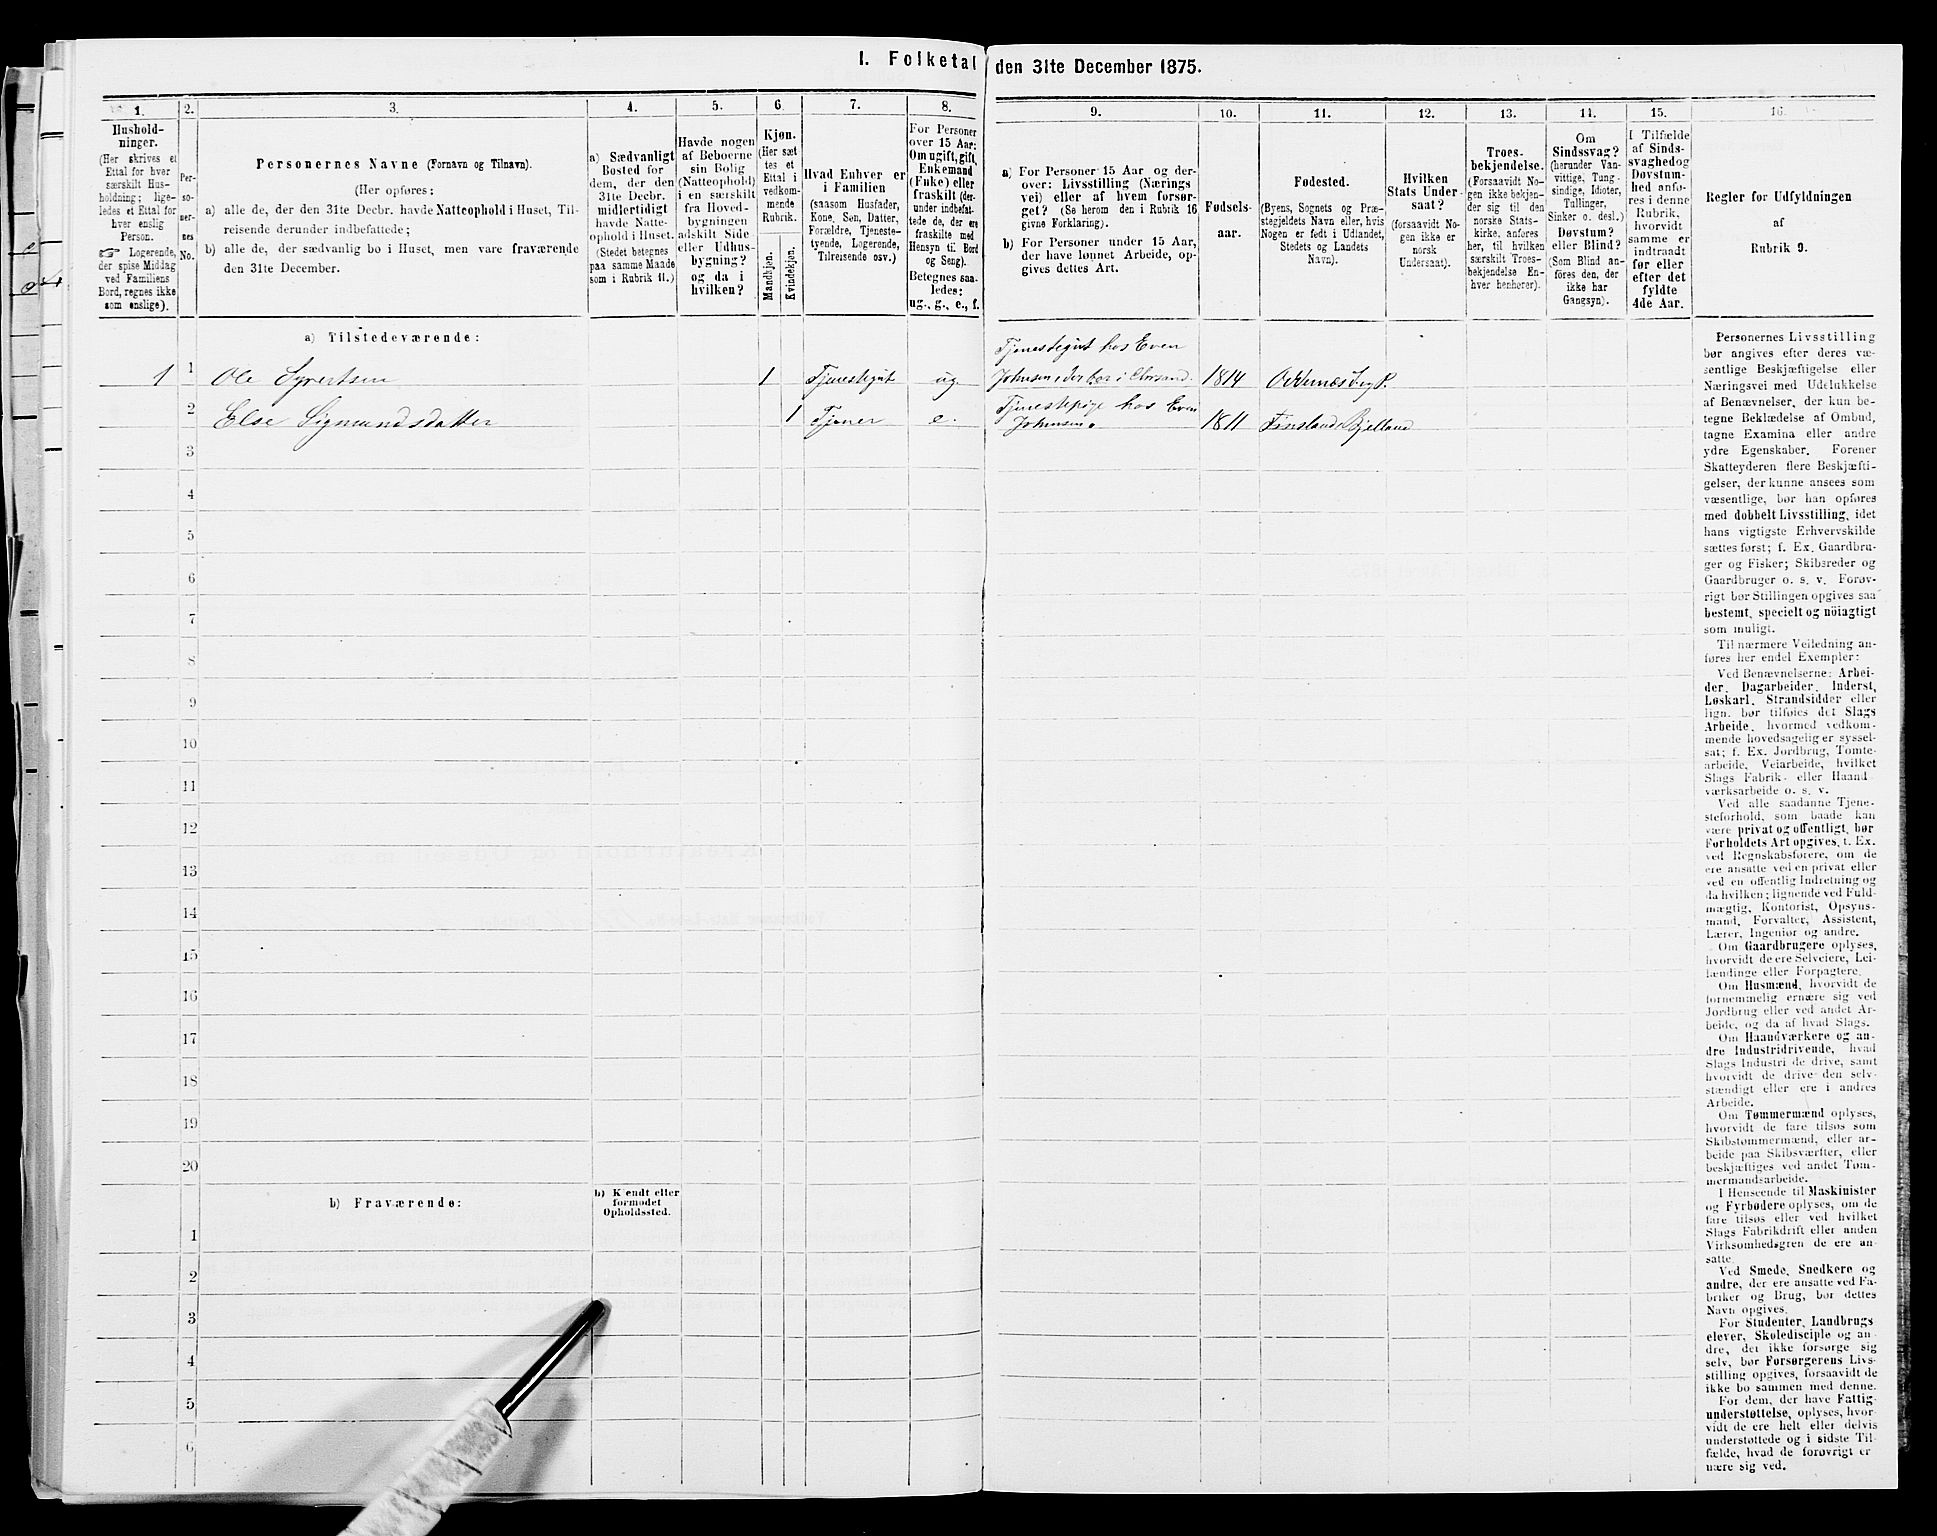 I. Folketal den 31te December 1875.
1.
2.
3.
4.
5.
6.
7.
8.
9.
10.
11.
12.
13.
14.
15.
16.
Hushold-
ninger.
(Her skrives et
Ettal for hver
særskilt Hus-
holdning; lige-
ledes et Ettal for
hver enslig
Person.
☞ Logerende,
der spise Middag
ved Familiens
Bord, regnes ikke
som enslige).
Per-
so-
ner-
nes
No.
Personernes Navne (Fornavn og Tilnavn).
(Her opføres:
a) alle de, der den 31te Decbr. havde Natteophold i Huset, Til-
reisende derunder indbefattede;
b) alle de, der sædvanlig bo i Huset, men vare fraværende
den 31te December.
a) Sædvanligt
Bosted for
dem, der den
31te Decbr.
midlertidigt
havde Natte-
ophold i Huset.
(Stedet betegnes
paa samme Maade
som i Rubrik 11.)
Havde nogen
af Beboerne
sin Bolig
(Natteophold)
i en særskilt
fra Hoved-
bygningen
adskilt Side-
eller Udhus-
bygning?
og da i
hvilken?
Kjøn.
(Her sæt
tes et
Ettal i
vedkom-
mende
Rubrik.
Mandkjøn.
Kvindekjøn.
Hvad Enhver er
i Familien
(saasom Husfader,
Kone, Søn, Datter,
Forældre, Tjeneste-
tyende, Logerende,
Tilreisende osv.)
For Personer
over 15 Aar:
Om ugift, gift,
Enkemand
(Enke) eller
fraskilt (der-
under indbefat-
tede de, der ere
fraskilte med
Hensyn til Bord
og Seng).
Betegnes saa-
ledes:
ug., g., e., f.
a) For Personer 15 Aar og der-
over: Livsstilling (Nærings
vei) eller af hvem forsør-
get? (Se herom den i Rubrik 16
givne Forklaring).
b) For Personer under 15 Aar,
der have lønnet Arbeide, op-
gives dettes Art.
Fødsels-
aar.
Fødested.
(Byens, Sognets og Præ-
stegjeldets Navn eller, hvis
Nogen er født i Udlandet,
Stedets og Landets
Navn).
Hvilken
Stats Under-
saat?
(forsaavidt No-
gen ikke er
norsk
Undersaat).
Troes-
bekjendelse.
(Forsaavidt No-
gen ikke bekjen-
der sig til den
norske Stats-
kirke. anføres
her, til hvilken
særskilt Troes-
bekjendelse En-
hver henhører).
Om
Sindssvag?
(herunder Van-
vittige, Tung-
sindige, Idioter,
Tullinger,
Sinker o. desl.)
Døvstum?
eller Blind?
(Som Blind an-
føres den, der
ikke har
Gangsyn).
I Tilfælde
af Sinds-
svaghed og
Døvstum-
hed anfø-
res i denne
Rubrik,
hvorvidt
samme er
indtraadt
før eller
efter det
fyldte
4de Aar.
Regler for Udfyldningen
af
Rubrik 9.
a) Tilstedeværende:
1 1 Ole Syvertsen 1 Tjenestegut ug. Tjenestegut hos Even
Johnsen 1814 Oddernæs
2 Else Sigmundsdatter 1 Tjener e. Tjenestepige hos Even
Johnsen. 1811 Finsland Bjelland
3
4
5
6
7
8
9
10
11
12
13
14
15
16
17
18
19
20
b) Fraværende:
b) Kjendt eller
formodet
Opholdssted.
1
2
3
4
5
6
Personernes Livsstilling
bør angives efter deres væ-
sentlige Beskjæftigelse eller
Næringsvei med Udelukkelse
af Benævnelser, der kun be-
tegne Beklædelse af Ombud,
tagne Examina eller andre
ydre Egenskaber. Forener
Skatteyderen flere Beskjæfti-
gelser, der kunne ansees som
væsentlige, bør han opføres
med dobbelt Livsstilling, idet
hans vigtigste Erhvervskilde
sættes først; f. Ex. Gaardbru-
ger og Fisker; Skibsreder og
Gaardbruger o. s. v. Forøv-
rigt bør Stillingen opgives saa
bestemt, specielt og nöiagtigt
som muligt.
Til nærmere Veiledning an-
føres her endel Exempler:
Ved Benævnelserne: Arbei-
der, Dagarbeider, Inderst,
Løskarl, Strandsidder eller
lign. bør tilføies det Slags
Arbeide, hvormed vedkom-
mende hovedsagelig er syssel-
sat; f. Ex. Jordbrug, Tomte-
arbeide, Veiarbeide, hvilket
Slags Fabrik- eller Haand-
værksarbeide o. s. v.
Ved alle saadanne Tjene-
steforhold, som baade kan
være privat og offentligt, bør
Forholdets Art opgives, f. Ex.
ved Regnskabsførere, om de
ere ansatte ved en privat eller
ved en offentlig Indretning og
da hvilken; lignende ved Fuld-
mægtig, Kontorist, Opsyns-
mand, Forvalter, Assistent,
Lærer, Ingeniør og andre.
Om Gaardbrugere oplyses,
hvorvidt de ere Selveiere, Lei-
lændinge eller Forpagtere.
Om Husmænd, hvorvidt de
fornemmelig ernære sig ved
Jordbrug eller ved andet Ar-
beide, og da af hvad Slags.
Om Haandværkere og an-
dre Industridrivende, hvad
Slags Industri de drive, samt
hvorvidt de drive den selv-
stændigt eller ere i andres
Arbeide.
Om Tømmermænd oplyses,
hvorvidt de fare tilsøs som
Skibstømmermænd, eller ar-
beide paa Skibsværfter, eller
beskjæftiges ved andet Tøm-
mermandsarbeide.
I Henseende til Maskinister
og Fyrbødere oplyses, om de
fare tilsøs eller ved hvilket
Slags Fabrikdrift eller anden
Virksomhedsgren de ere an-
satte.
Ved Smede, Snedkere og
andre, der ere ansatte ved Fa-
briker og Brug, bør dettes
Navn opgives.
For Studenter, Landbrugs
elever, Skoledisciple og an-
dre, det ikke forsørge sig
selv, bør Forsørgerens Livs-
stilling opgives, forsaavidt de
ikke bo sammen med denne.
For dem, der have Fattig-
understøttelse, oplyses, hvor-
vidt de ere helt eller delvis
understøttede og i sidste Til-
fælde, hvad de forøvrigt er
nære sig ved.